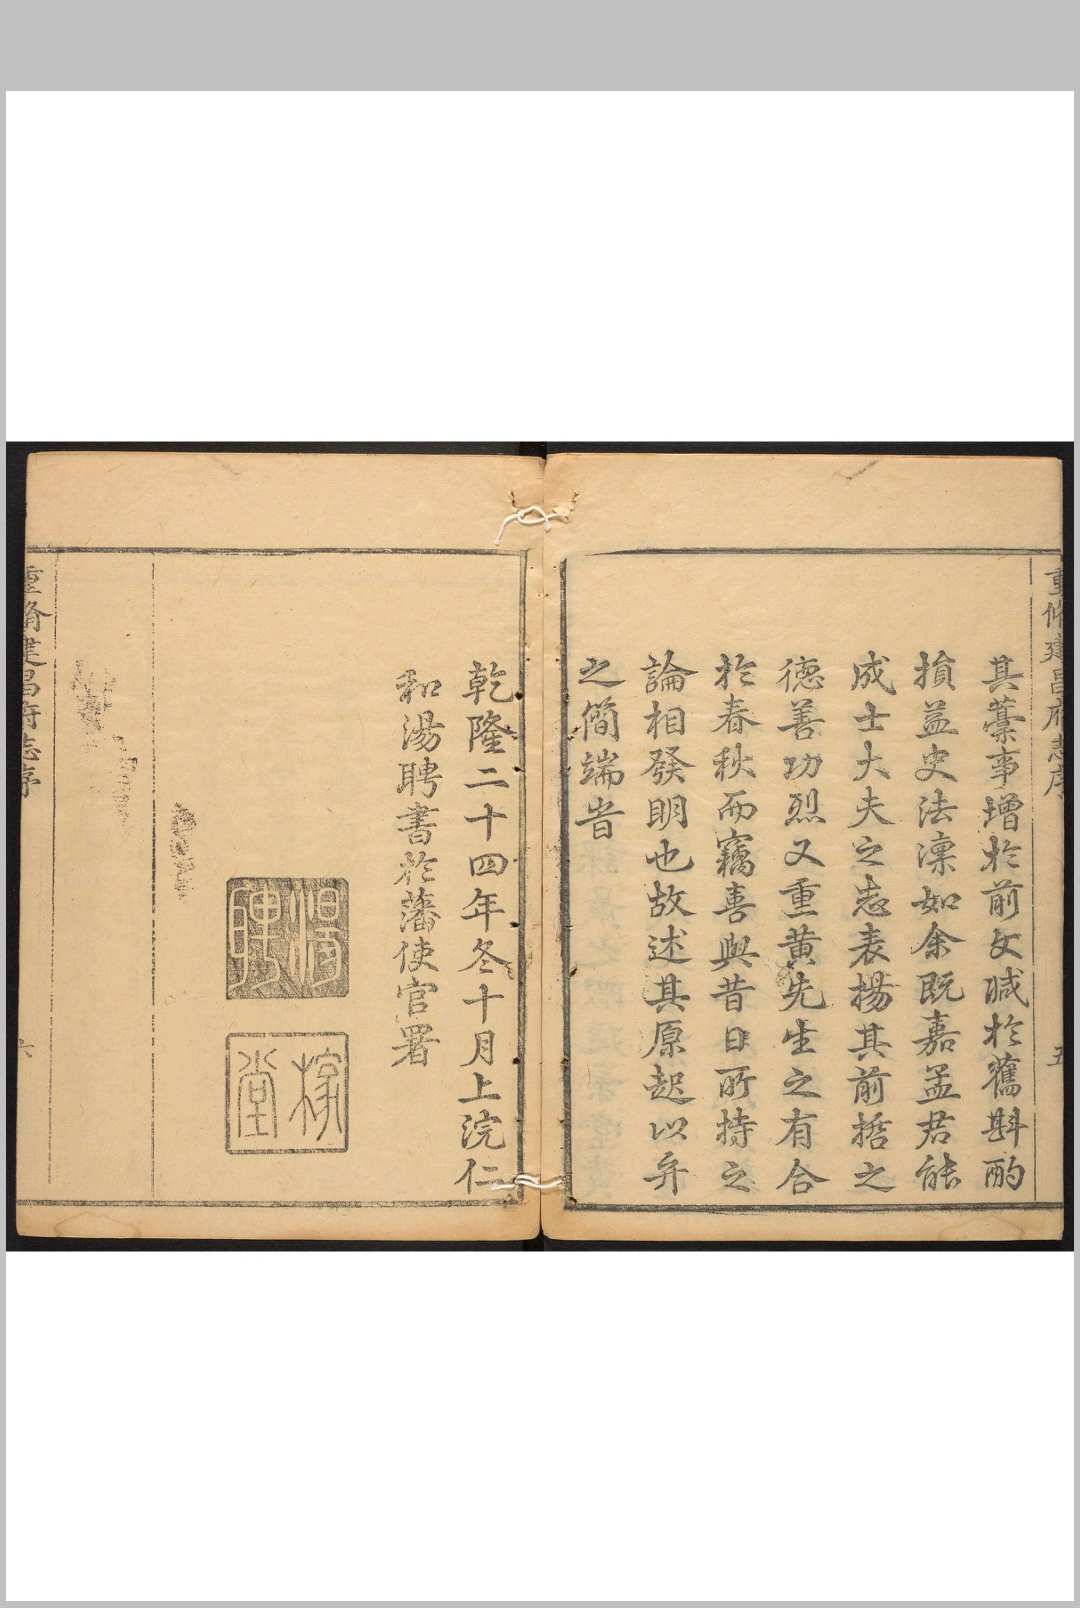 重修建昌府志序
五
其藁事增於前文瑊於舊斟酌
損益史法凜如余既嘉孟君能
成士大夫之志表揚其前哲之
德善功烈又重黄先生之有合
於春秋而竊喜與昔日所持之
論相發明也故述其原起以弁
之簡端旹
乾隆二十四年冬十月上浣仁
和湯聘書於藩使官署
湯聘
稼堂
重脩建昌府志序
六